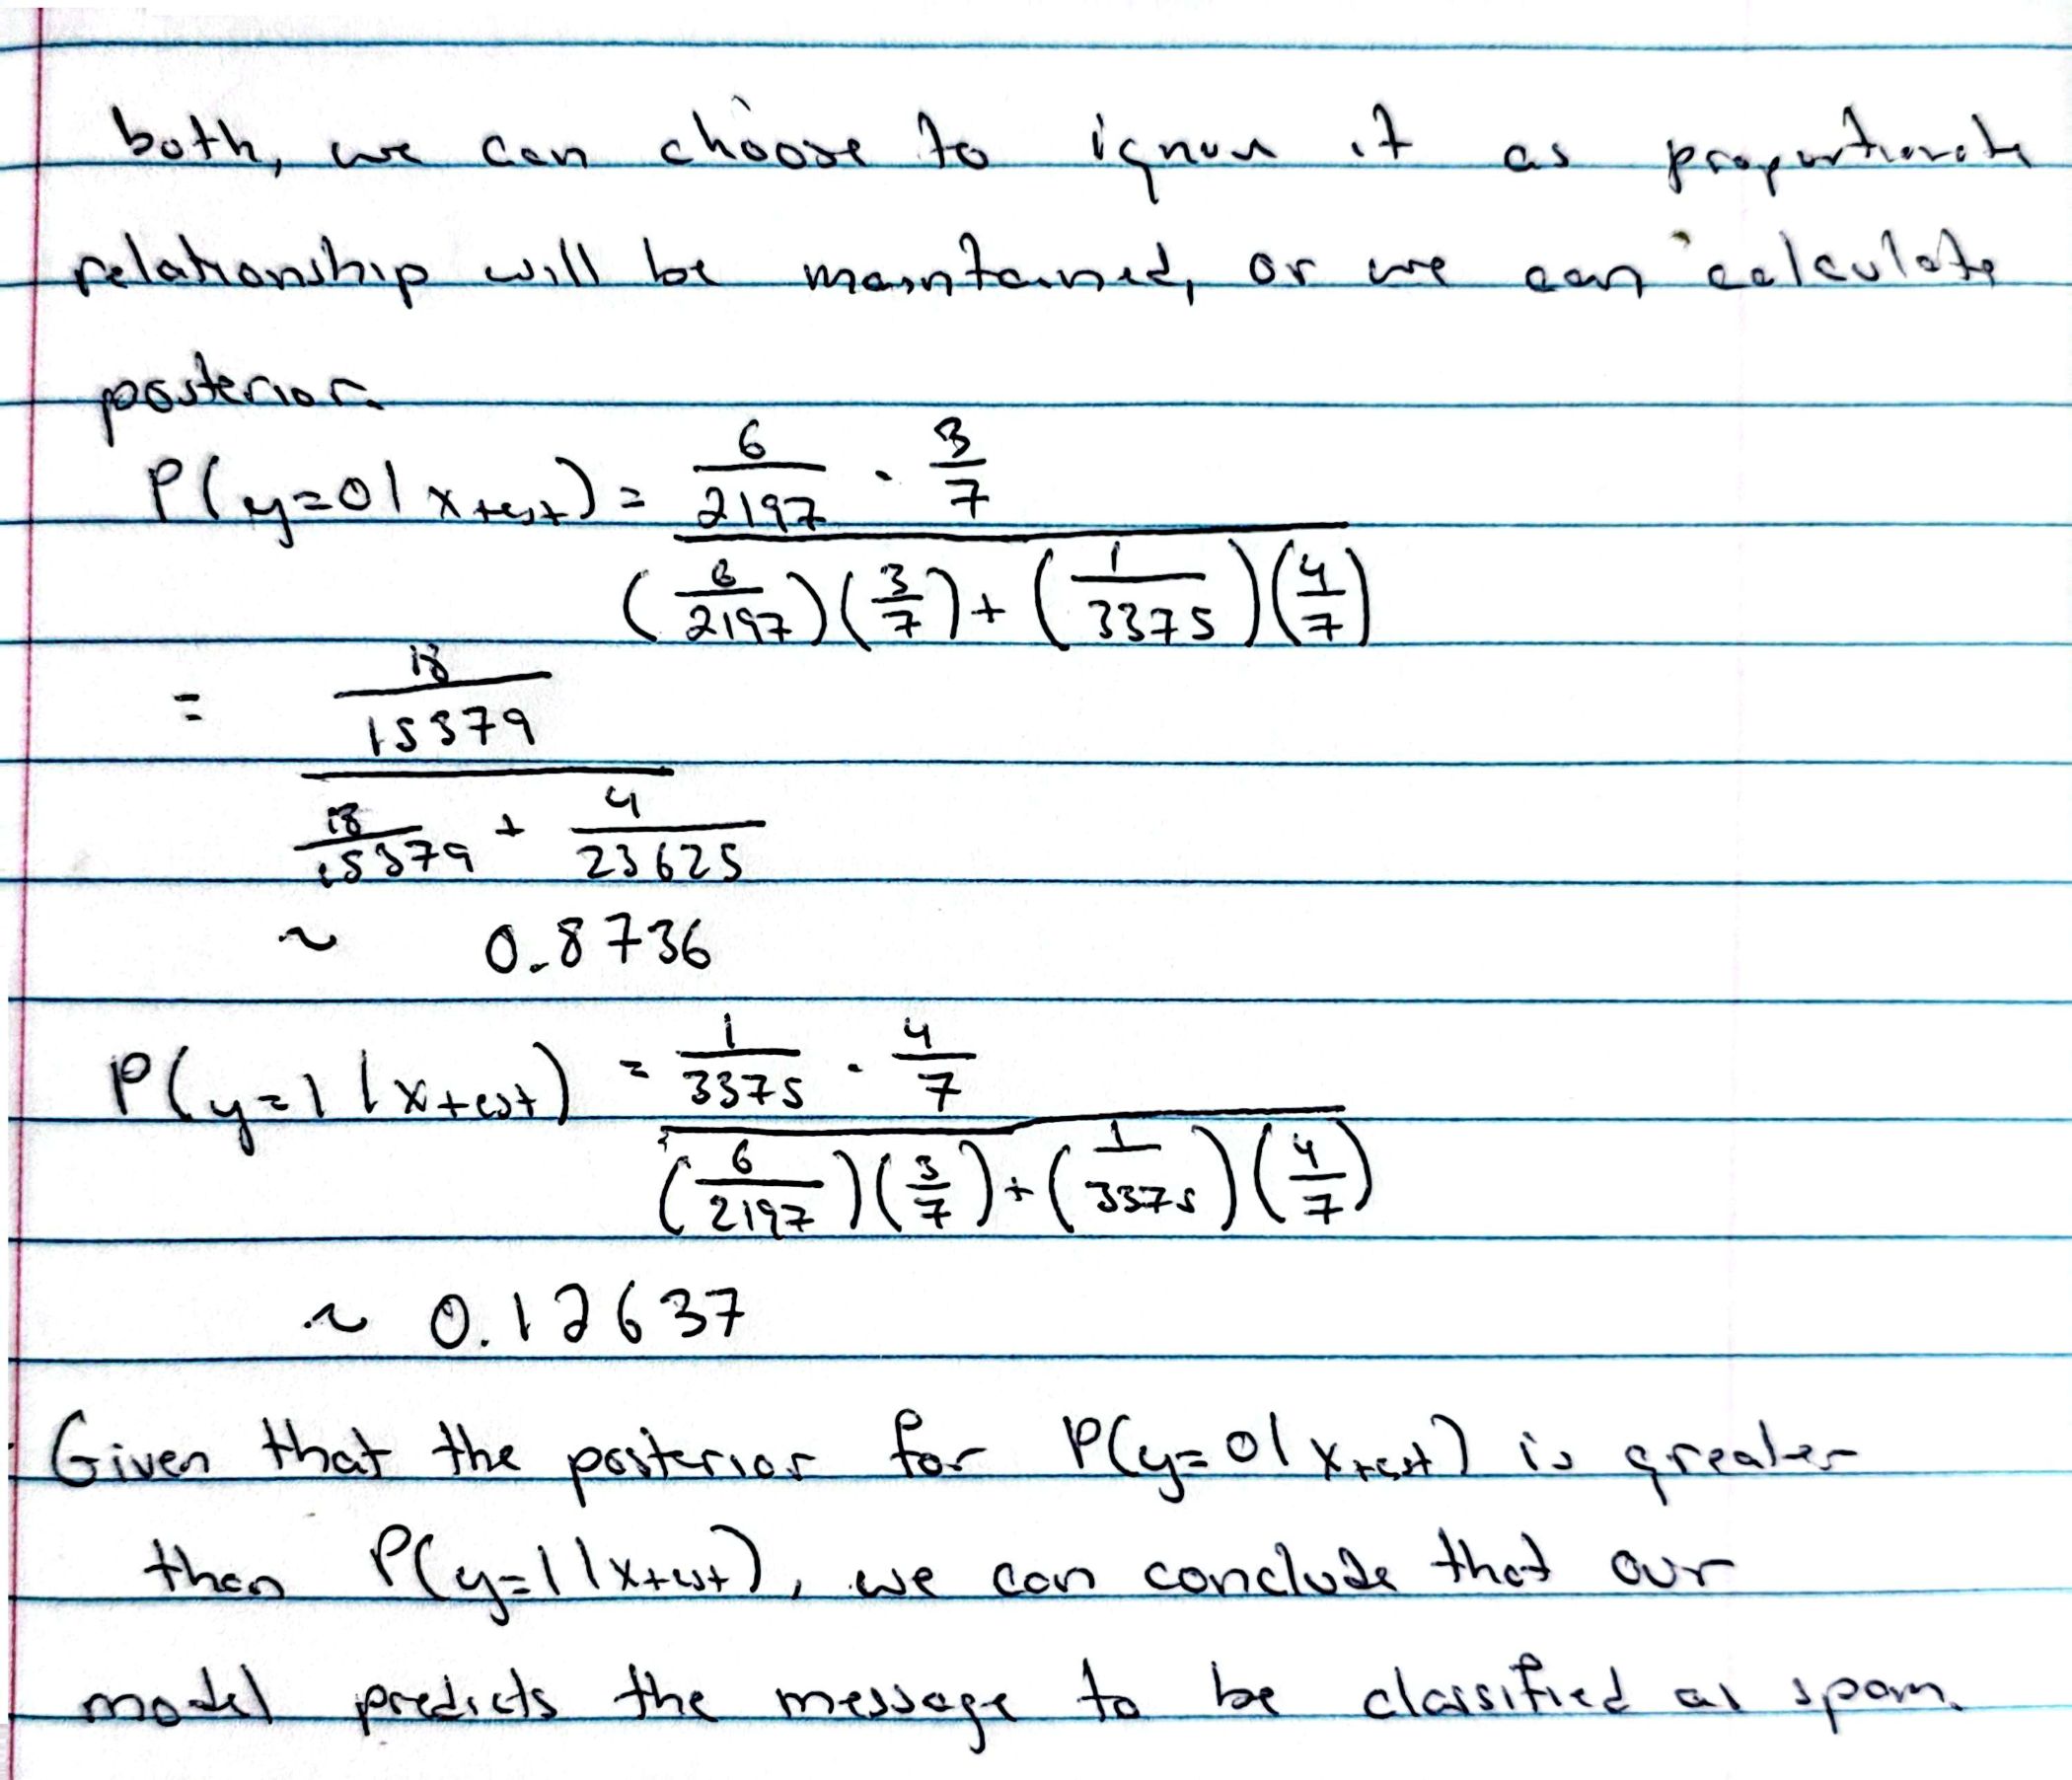 both, we can choose to ignore it as proportionate
relationship will be maintained, or we can calculate
posterior.
P(y=0|x_test) = 6/2197 · 3/7
(6/2197)(3/7) + (1/3375)(4/7)
= 18/15379
18/15379 + 4/23625
~ 0.8736
P(y=1|x_test) = 1/3375 · 4/7
(6/2197)(3/7) + (1/3375)(4/7)
~ 0.12637
Given that the posterior for P(y=0|x_test) is greater
than P(y=1|x_test), we can conclude that our
model predicts the message to be classified as spam.